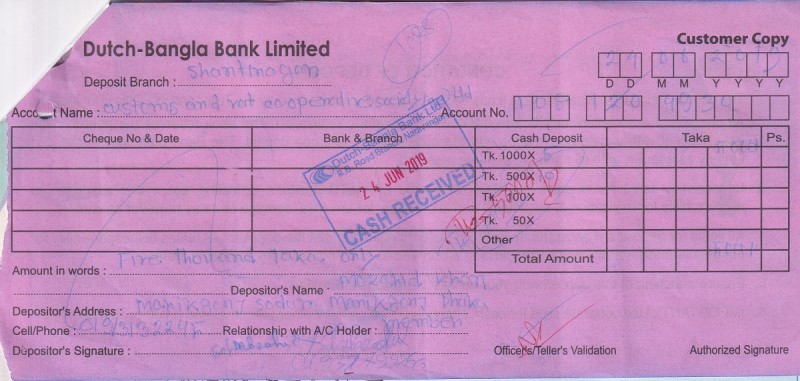 Dutch-Bangla Bank Limited
Customer Copy
Deposit Branch : Shantinagar
24 06 2019
D D M M Y Y Y Y
Account Name : customs and vat co-operative society Ltd
Account No. 108 120
Cheque No & Date Bank & Branch Cash Deposit Taka Ps.
Tk. 1000X 5
Tk. 500X
Tk. 100X
Tk. 50X
Other
Total Amount
Dutch-Bangla Bank Ltd.
B.B. Road Branch, Narayanganj
24 JUN 2019
CASH RECEIVED
Amount in words : Five thousand taka only
Depositor's Name : Morshid Khan
Depositor's Address : Manikganj sadar, Manikganj Dhaka
Cell/Phone : Relationship with A/C Holder : member
Depositor's Signature :
Officer's/Teller's Validation Authorized Signature